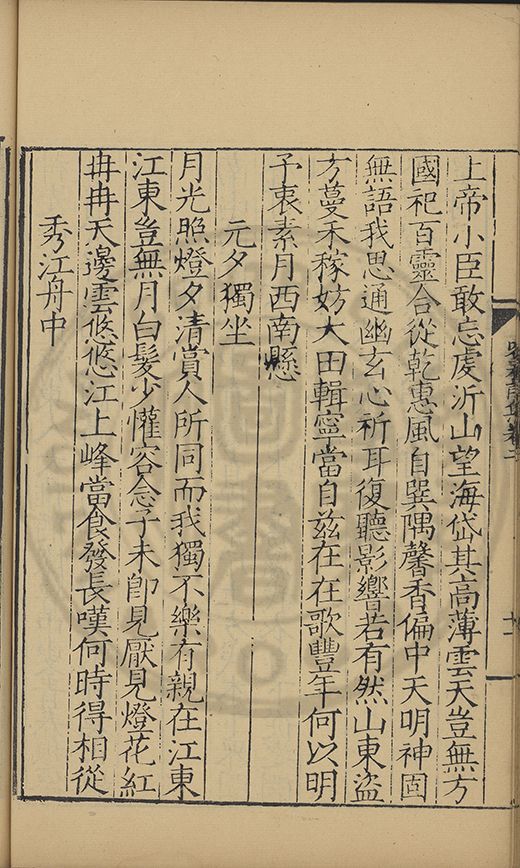 上帝小臣敢忘虔沂山望海岱其高薄雲天豈無方
國祀百靈合從乾惠風自巽隅馨香徧中天明神固
無語我思通幽玄心祈耳復聽影響若有然山東盜
方蔓禾稼妨大田輯寧當自茲在在歌豐年何以明
予衷素月西南懸
元夕獨坐
月光照燈夕清賞人所同而我獨不樂有親在江東
江東豈無月白髮少懽容念子未卽見厭見燈花紅
冉冉天邊雲悠悠江上峰當食發長嘆何時得相從
秀江舟中